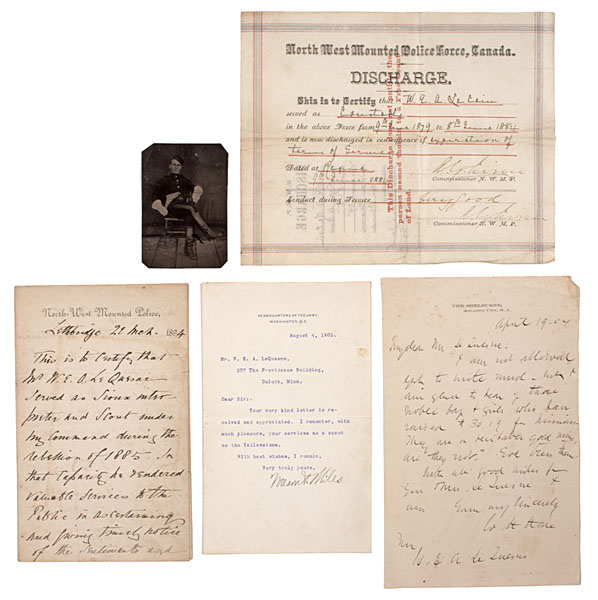 North West Mounted Police Force, Canada.
DISCHARGE.
This is to Certify that W. E. A. Le Cain
served as Constable
in the above Force from 9th June 1879 to 8th June 1884
and is now discharged in consequence of expiration of
term of Service
Dated at Regina
9th June 188
Commissioner N. W. M. P.
Conduct during Service very good
Commissioner N. W. M. P.
This Discharge
person named
of Land.
North-West Mounted Police,
Lethbridge 21 Mch. 1894
This is to Certify that
Mr W. E. A. Le Quesne
Served as Sioux inter
preter and Scout under
my Command during the
rebellion of 1885. In
that Capacity he rendered
Valuable Services to the
Public in ascertaining
and giving timely notice
of the Intents and
HEADQUARTERS OF THE ARMY,
WASHINGTON, D.C.
August 4, 1903.
Mr. W. E. A. LeQuesne,
207 The Providence Building,
Duluth, Minn.
Dear Sir:-
Your very kind letter is re-
ceived and appreciated. I remember, with
much pleasure, your services as a scout
on the Yellowstone.
With best wishes, I remain,
Very truly yours,
Nelson A. Miles
THE SHELBURNE,
ATLANTIC CITY, N.J.
April 19. 04
My dear Mr. Le Quesne:
I am not allowed
yet to write much - but I
am glad to hear of those
noble boys & girls who have
raised $30.19 for
They are a
are they not? God bless them
With all good wishes for
you & Mrs. Le Quesne I
am yours very sincerely
W. H. Hare
Mr.
W. E. A. Le Quesne